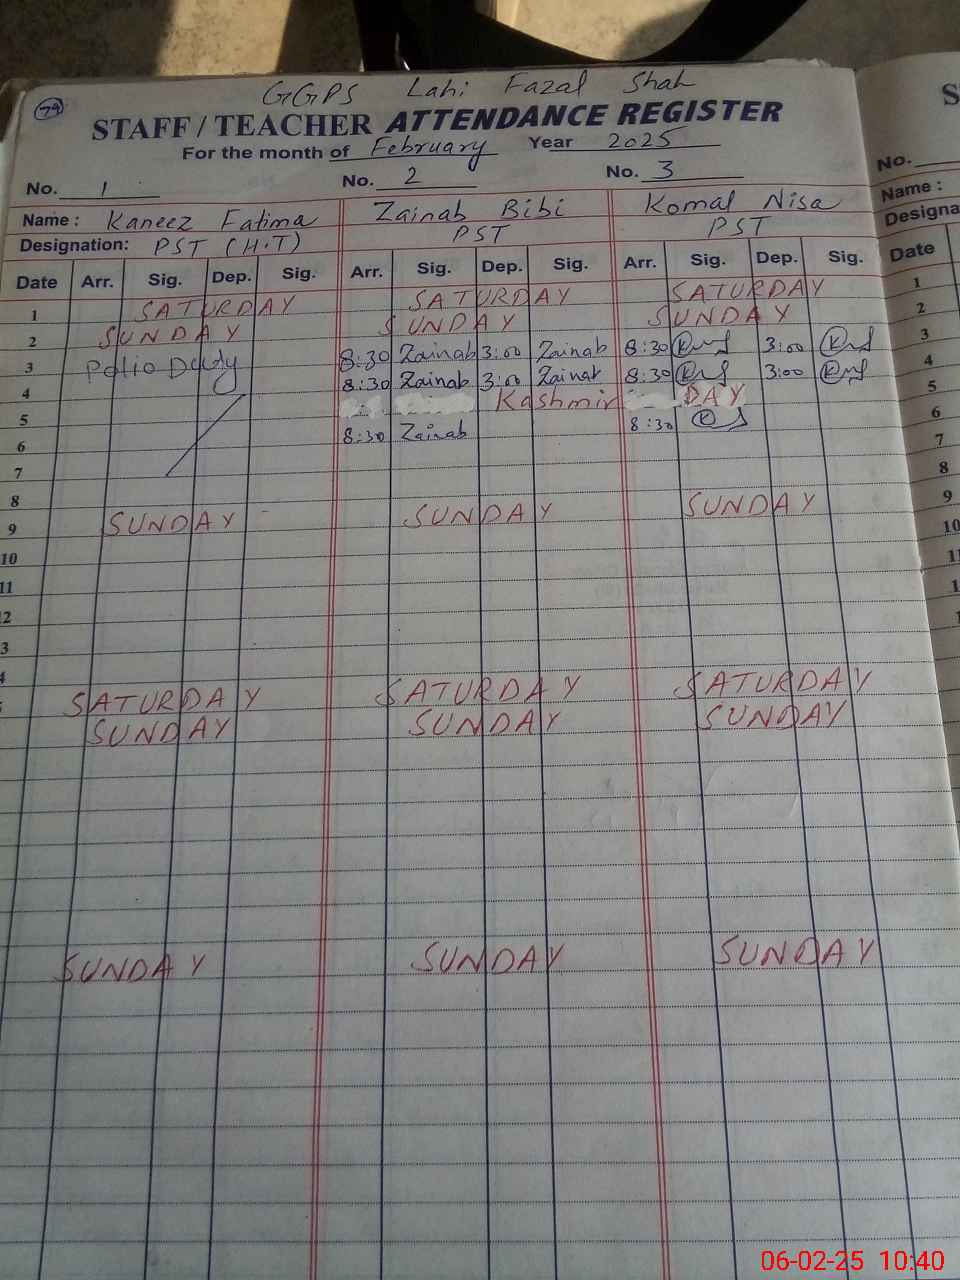 79
GGPS Lahi Fazal Shah
STAFF / TEACHER ATTENDANCE REGISTER
For the month of February Year 2025
No. 1 No. 2 No. 3
Name : Kaneez Fatima Zainab Bibi Komal Nisa
Designation: PST (H.T) PST PST
Date Arr. Sig. Dep. Sig. Arr. Sig. Dep. Sig. Arr. Sig. Dep. Sig.
1 SATURDAY SATURDAY SATURDAY
2 SUNDAY SUNDAY SUNDAY
3 Polio Duty 8:30 Zainab 3:00 Zainab 8:30 3:00
4 8:30 Zainab 3:00 Zainab 8:30 3:00
5 Kashmir DAY
6 8:30 Zainab 8:30
7
8
9 SUNDAY SUNDAY SUNDAY
10
11
2
3
4
SATURDAY SATURDAY SATURDAY
SUNDAY SUNDAY SUNDAY
SUNDAY SUNDAY SUNDAY
S
No.
Name :
Designa
Date
1
2
3
4
5
6
7
8
9
10
11
06-02-25 10:40